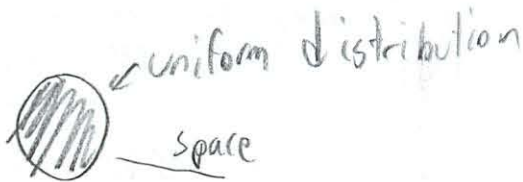 uniform distribution
space